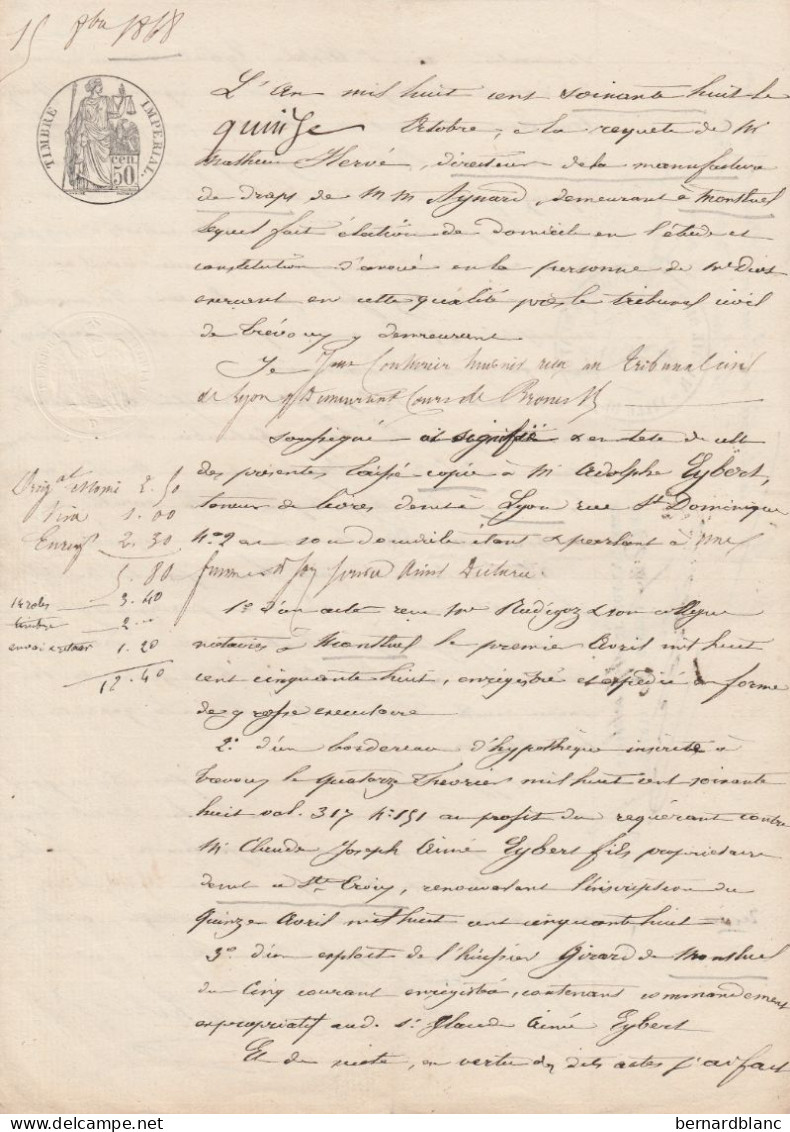 15 8bre 1868
TIMBRE IMPERIAL.
50 cen
L'An mil huit cent soixante huit le
quinze Octobre, à la requête de Mr
Mathieu Hervé, directeur de la manufacture
de draps de M M Aynard, demeurant à Montluel
lequel fait élection de domicile en l'étude et
constitution d'avoué en la personne de Me
exerçant en cette qualité près le tribunal civil
de Trévoux y demeurant
Je huissier au tribunal civil
de Lyon y Demeurant Cours de Brosses
soussigné ai signifié & en tête de cell
des présentes laissé copie à Mr Adolphe Eybert,
teneur de livres demt à Lyon rue St Dominique
No 2 au son domicile étant & parlant à une
femme à son service ainsi Déclaré
Orig al 2. 50
Visa 1. 00
Enreg 2. 30
5. 80
14 roles 3. 40
timbre 2 "
envoi & retour 1. 20
12. 40
1o d'un acte reçu Me Rudigoz & son collègue
notaires à Montluel le premier Avril mil huit
cent cinquante huit, enregistré et expédié en forme
de grosse exécutoire
2o d'un bordereau d'hypothèque inscrite à
Trévoux le quatorze Février mil huit cent soixante
huit vol. 317 No 151 au profit du requérant contre
Mr Claude Joseph Aimé Eybert fils propriétaire
demt à Ste Croix, renouvelant l'inscription du
quinze Avril mil huit cent cinquante huit
3o d'un exploit de l'huissier Girard de Montluel
du Cinq courant enregistré, contenant commandement
expropriatif aud. sr Claude Aimé Eybert
Et de suite, en vertu des dits actes j'ai fait
bernardblanc